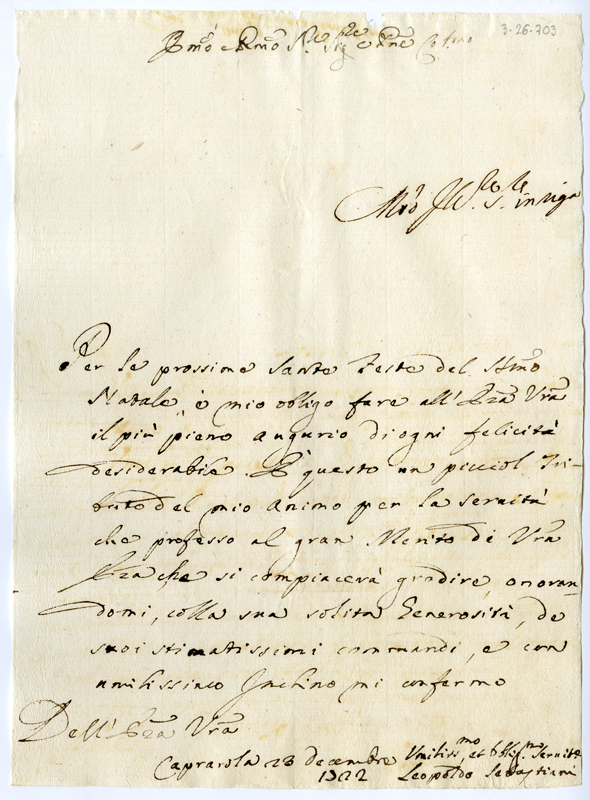 3-26-703
Per le prossime Sante Feste del SSmo
Natale, è mio obligo fare all'Ecza Vra
il più pieno augurio di ogni felicità
desiderabile. E' questo un picciol Tri-
buto del mio animo per la servitù
che professo al gran Merito di Vra
Ecza, che si compiacerà gradire, onoran-
domi, colla sua solita Generosità, de
suoi stimatissimi commandi, e con
umilissimo Inchino mi confermo
Dell'Ecza Vra
Caprarola 23 decembre Umilissmo, et obligmo Servite
1722 Leopoldo Sebastiani